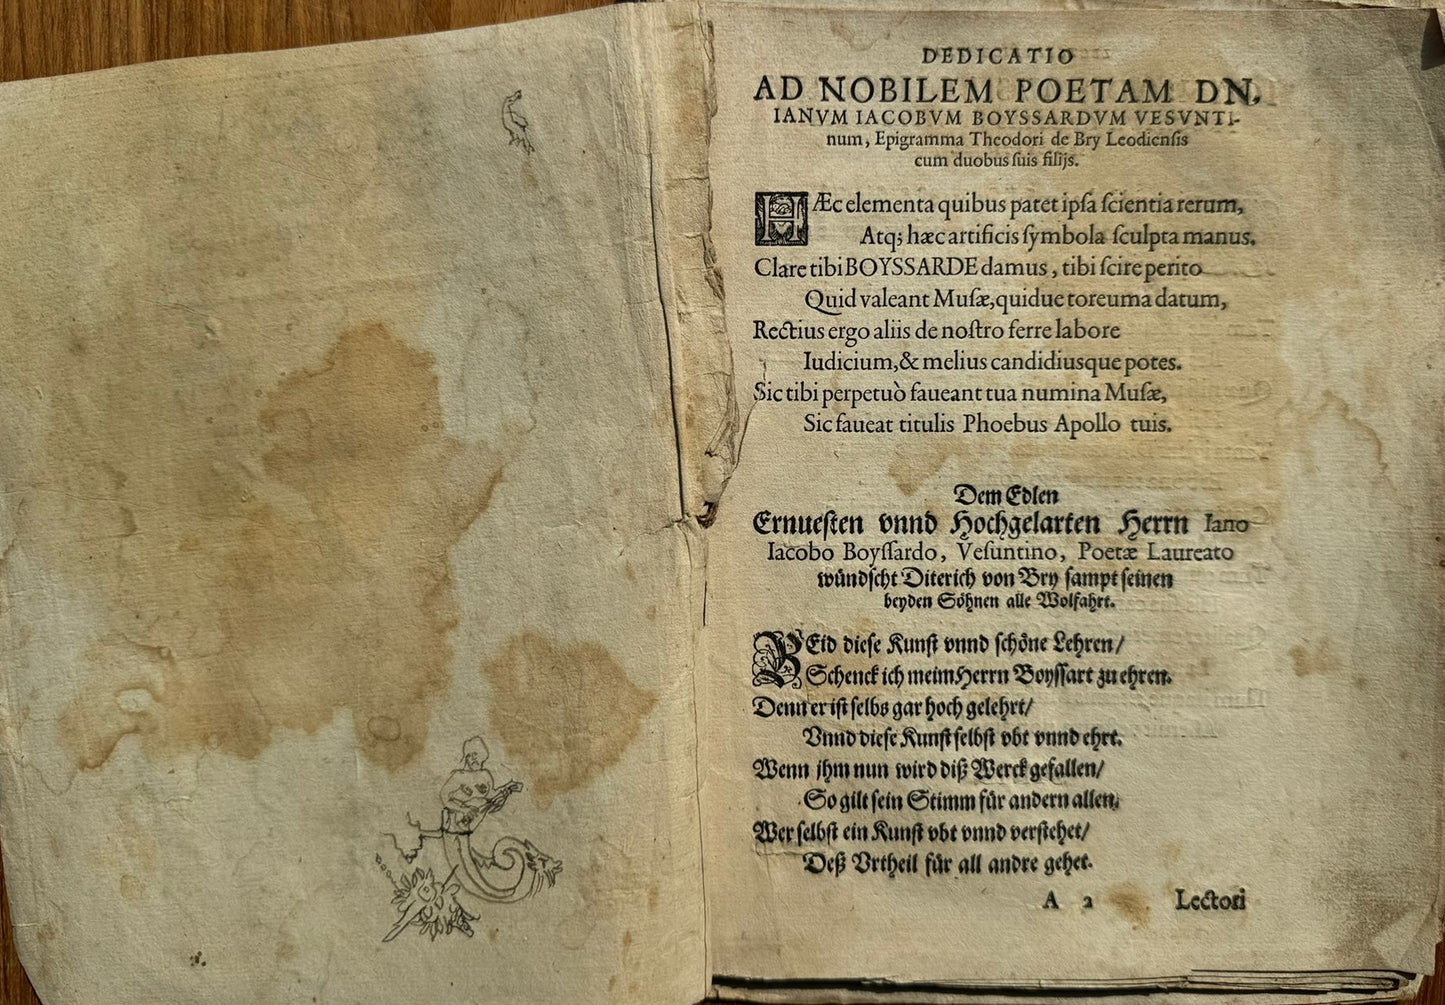 DEDICATIO
AD NOBILEM POETAM DN,
IANVM IACOBVM BOYSSARDVM VESVNTI-
num, Epigramma Theodori de Bry Leodienſis
cum duobus ſuis filijs.
HÆc elementa quibus patet ipſa ſcientia rerum,
Atq; hæc artificis ſymbola ſculpta manus.
Clare tibi BOYSSARDE damus, tibi ſcire perito
Quid valeant Muſæ, quidue toreuma datum,
Rectius ergo aliis de noſtro ferre labore
Iudicium, & melius candidiusque potes.
Sic tibi perpetuò faueant tua numina Muſæ,
Sic faueat titulis Phoebus Apollo tuis.
Dem Edlen
Ernueſten vnnd Hochgelarten Herrn Iano
Iacobo Boyſſardo, Veſuntino, Poetæ Laureato
wůndſcht Diterich von Bry ſampt ſeinen
beyden Söhnen alle Wolfahrt.
BEid dieſe Kunſt vnnd ſchöne Lehren/
Schenck ich meim Herrn Boyſſart zu ehren.
Denn er iſt ſelbs gar hoch gelehrt/
Vnnd dieſe Kunſt ſelbſt vbt vnnd ehrt.
Wenn jhm nun wird diß Werck gefallen/
So gilt ſein Stimm fůr andern allen,
Wer ſelbſt ein Kunſt vbt vnnd verſtehet/
Deß Vrtheil fůr all andre gehet.
A 2 Lectori